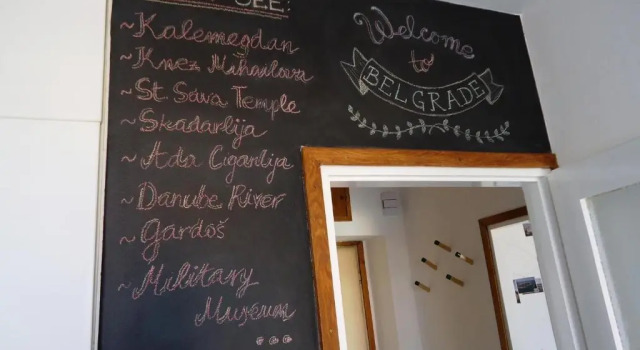 SEE:
~Kalemegdan
~Knez Mihailova
~St. Sava Temple
~Skadarlija
~Ada Ciganlija
~Danube River
~Gardoš
~Military
Museum
...
Welcome
to
BELGRADE